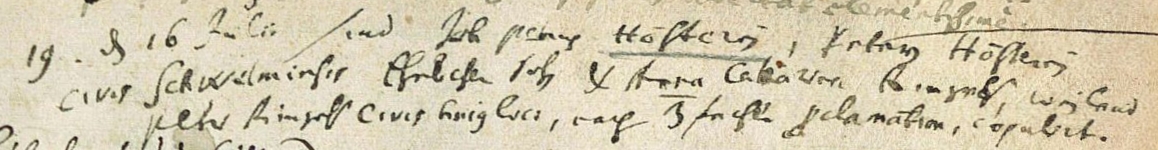 19. d 16 Julii sind Joh peter Höfterey, Peters Höfterey
civis Schwelmensis Ehelicher sohn & Anna Catharina Ringels, weiland
peter Ringels civis hujus loci, nach 3 facher proclamation, copulirt.